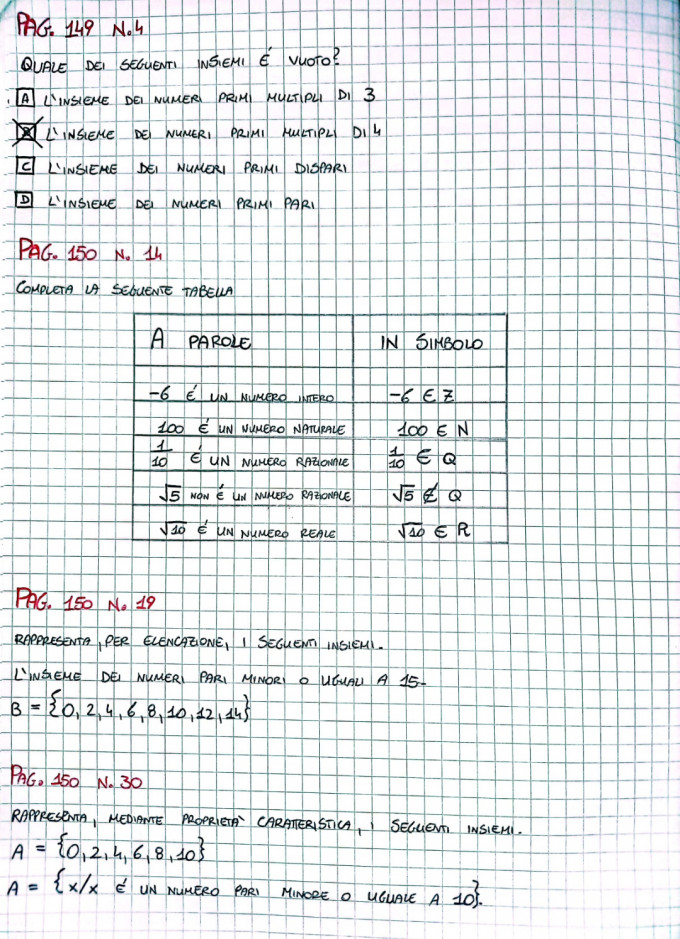 PAG. 149 N.4
QUALE DEI SEGUENTI INSIEMI É VUOTO?
A L'INSIEME DEI NUMERI PRIMI MULTIPLI DI 3
B L'INSIEME DEI NUMERI PRIMI MULTIPLI DI 4
C L'INSIEME DEI NUMERI PRIMI DISPARI
D L'INSIEME DEI NUMERI PRIMI PARI
PAG. 150 N. 14
COMPLETA LA SEGUENTE TABELLA
A PAROLE IN SIMBOLO
-6 É UN NUMERO INTERO -6 ∈ Z
100 É UN NUMERO NATURALE 100 ∈ N
1/10 É UN NUMERO RAZIONALE 1/10 ∈ Q
√5 NON É UN NUMERO RAZIONALE √5 ∉ Q
√10 É UN NUMERO REALE √10 ∈ R
PAG. 150 N. 19
RAPPRESENTA, PER ELENCAZIONE, I SEGUENTI INSIEMI.
L'INSIEME DEI NUMERI PARI MINORI O UGUALI A 15.
B = {0, 2, 4, 6, 8, 10, 12, 14}
PAG. 150 N. 30
RAPPRESENTA, MEDIANTE PROPRIETA' CARATTERISTICA, I SEGUENTI INSIEMI.
A = {0, 2, 4, 6, 8, 10}
A = {x/x É UN NUMERO PARI MINORE O UGUALE A 10}.